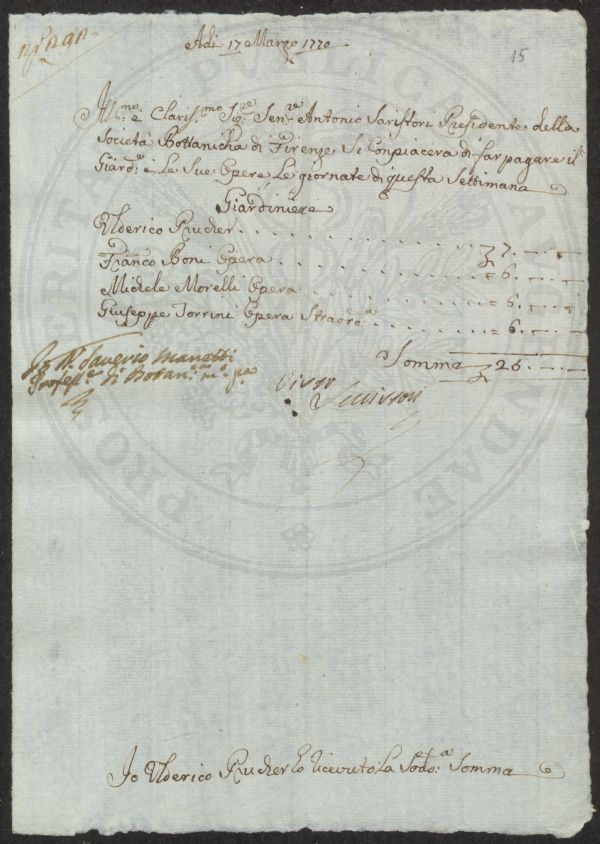 Adi 17 Marzo 1770
15
Ill.mo e Claris.mo Sig.re Sen.re Antonio Saristori Presidente della
Società Bottanicha di Firenze Si Conpiacera di far pagare il
Giard.e e Le Sue Opere Le giornate di questa Settimana
Giardiniere
Ulderico Prucher 7
Franco Boni Opera = 6
Michele Morelli Opera = 6
Giuseppe Torrini Opera Straord.a = 6
Somma 25
Io D. Saverio Manetti
Profess.e di Botan.ca m.o p.a
Visto
Io Ulderico Prucher ho Riceuto La Sod.a Somma
PUBLICAE
PROSPERITATI